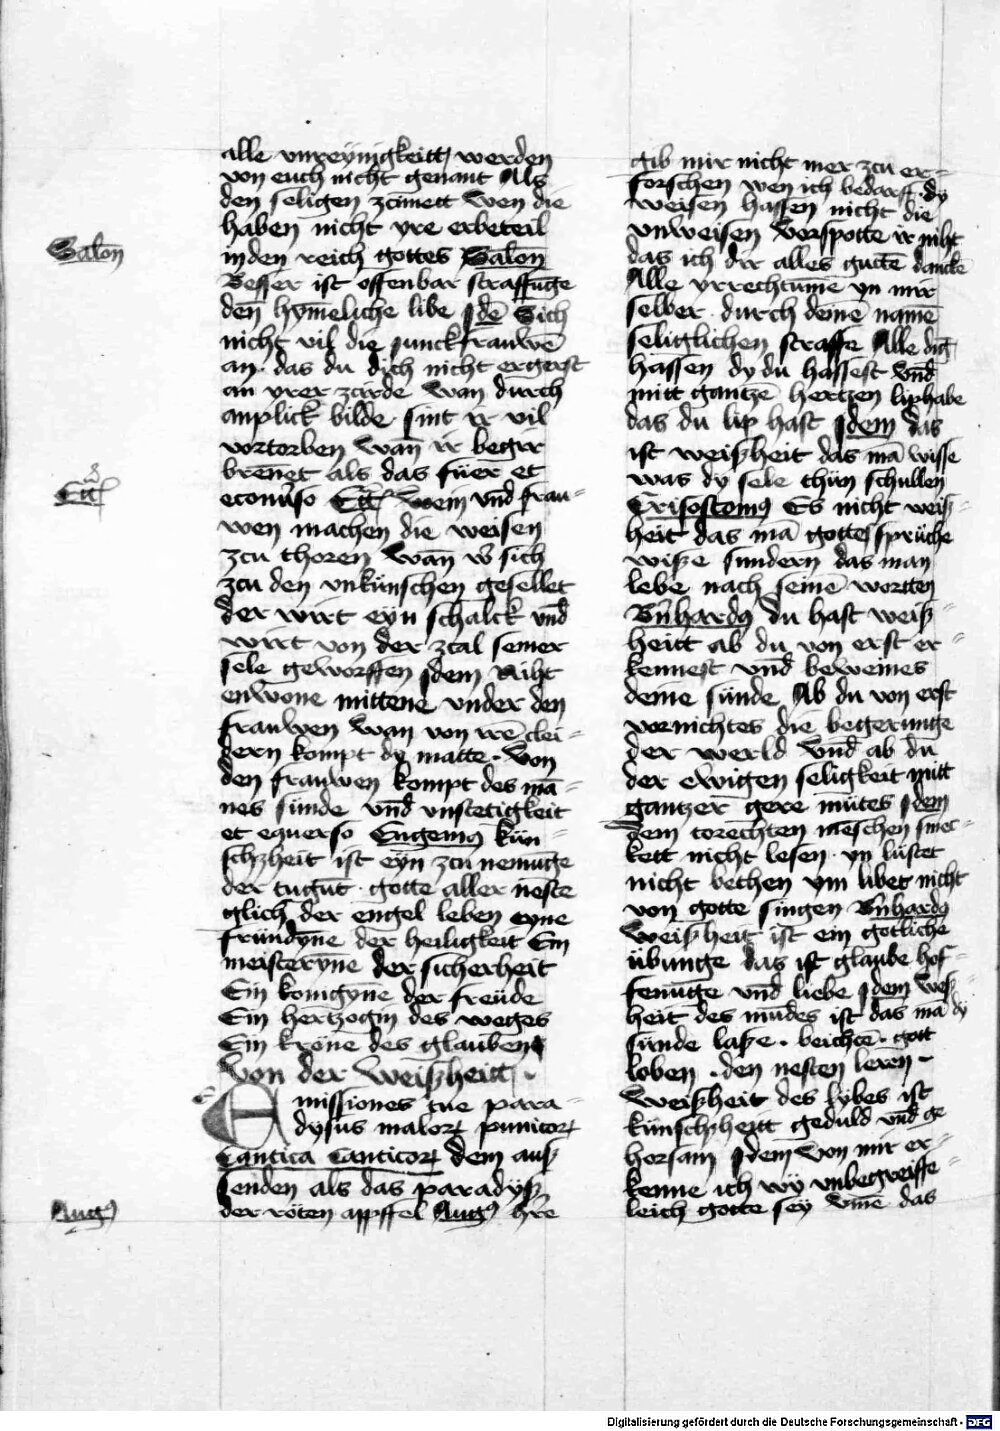 alle vnreynigkeitt werden
von euch nicht genant Als
den seligen zcimett Wen die
haben nicht yre erbeteil
inden reich gottes Salon̄
Salon̄
Besser ist offenbar straffūge
den hymeliche libe Jdē Sich
nicht vil die junckfrauwē
an · das du dich nicht ergerst
an yrer zcirde Wan durch
anplick bilde sint ir vil
vortorben Wan ir begir
brennet als das füer et
econuerso Eccī Wein vnd frau-
Eccī
wen machen die weisen
zcu thoren Wan w̄ sich
zcu den vnkünschen gesellet
der wirt eyn schalck vnd
wirt von der zcal seiner
sele geworffen Jdem Niht
enwone mittene vnder den
frauwen Wan von irē clei-
dern kompt dy matte · Von
den frauwen kompt des mā-
nes sünde vnd vnstetigkeit
et equerso Eugenius kün-
schheit ist eyn zcu nemūge
der tugūt · gotte aller neste
glich der engel leben eyne
fründyne der heiligkeit Ein
meisteryne der sicherheit
Ein konigyne der freüde
Ein hertzogin des weges
Ein krone des glaubens
Von der Weißheitt ·
Emissiones tue para-
dysus malorum punicorum
Cantica Canticorum dem auß
senden als das paradyß
der röten appffel Aug9 h're
Aug9
gib mir nicht mer zcu er-
forschen wen ich bedarff · dy
weisen hassen nicht die
vnweisen Verspotte ir niht
das ich dir alles guttē danckē
Alle vrrechtūme yn mir
selber · durch deinē namē
seliglichen straffe Alle dig̅
hassen dy du hassest vnd
mitt gantzē hertzen liphabe
das du lip hast Jdem das
ist weißheit das mā wisse
was dy sele thün schullen
Crisostomus Es nicht weiß-
heit das mā gottes sprüche
wiße sundern das man
lebe nach seinē wortten
Bn̄hardus du hast weiß-
heitt ab du von erst er-
kennest vnd beweines
deine sünde Ab du von erst
vornichtes die begerunge
der werld Vnd ab du
der ewigen seligkeit mitt
gantzer gere mütes Jdem
dem torechten meschen smec-
kett nicht lesen · yn lüstet
nicht bethen ym libet nicht
von gotte singen Bn̄hardus
Weißheit ist ein gotliche
übunge das ist glaube hof-
fenūge vnd liebe Jdem Weß-
heit des mūdes ist das mā dy
sünde laße · beichtē · gott
loben · den nesten leren ·
Weißheit des lybes ist
künschheitt geduld vnd ge
horsam Jdem Von mir er-
kenne ich wy vnbegreiffe-
leich gotte sey Vmē das
Digitalisierung gefördert durch die Deutsche Forschungsgemeinschaft - DFG